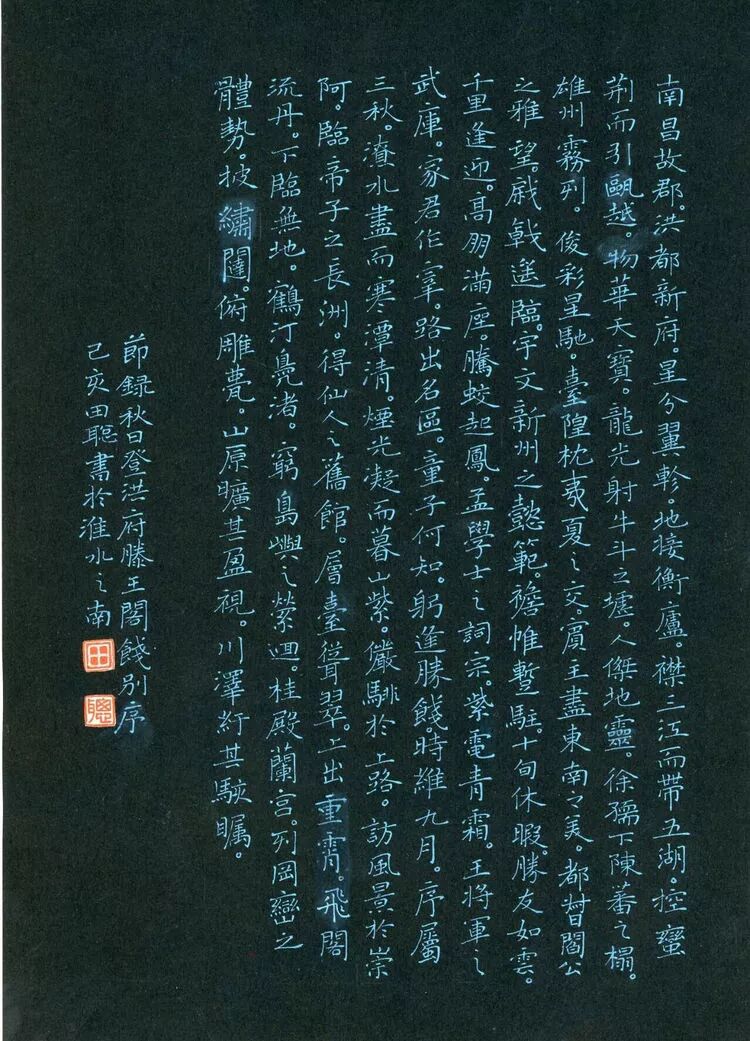 南昌故郡。洪都新府。星分翼軫。地接衡廬。襟三江而帶五湖。控蠻
荆而引甌越。物華天寶。龍光射牛斗之墟。人傑地靈。徐孺下陳蕃之榻。
雄州霧列。俊彩星馳。臺隍枕夷夏之交。賓主盡東南之美。都督閻公
之雅望。棨戟遙臨。宇文新州之懿範。襜帷暫駐。十旬休暇。勝友如雲。
千里逢迎。高朋滿座。騰蛟起鳳。孟學士之詞宗。紫電青霜。王將軍之
武庫。家君作宰。路出名區。童子何知。躬逢勝餞。時維九月。序屬
三秋。潦水盡而寒潭清。煙光凝而暮山紫。儼騑於上路。訪風景於崇
阿。臨帝子之長洲。得仙人之舊館。層臺聳翠。上出重霄。飛閣
流丹。下臨無地。鶴汀鳧渚。窮島嶼之縈迴。桂殿蘭宮。列岡巒之
體勢。披繡闥。俯雕甍。山原曠其盈視。川澤紆其駭矚。
節錄秋日登洪府滕王閣餞別序
己亥田聰書於淮水之南
田
聰